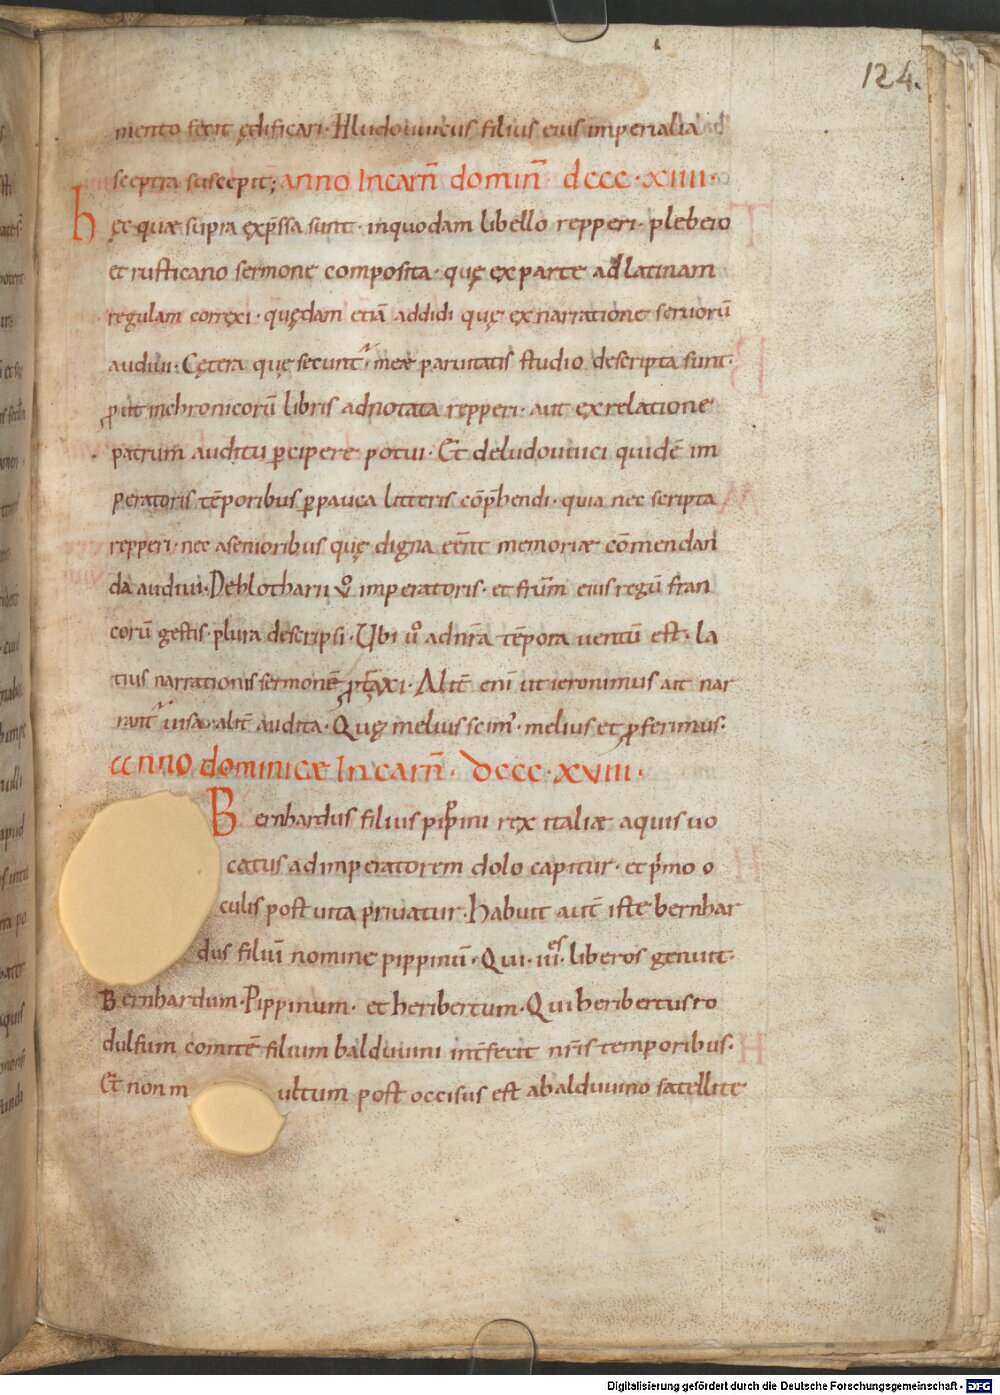 124.
mento fecit ędificari · Hludouuicus filius eius imperialia
sceptra suscepit; anno Incarn̄ domin̄ · dccc · xiiii ·
hęc quae supra exp̄ssa sunt · inquodam libello repperi · plebeio
et rusticano sermone composita · quę ex parte ad latinam
regulam correxi · quędam etiā addidi quę ex narratione seniorū
audiui · Cętera quę secuntʳ · meae paruitatis studio descripta sunt ·
ꝓut inchronicorū libris adnotata repperi · aut ex relatione
patrum auditu ꝑcipere potui · Et deludouuici quidē im
peratoris tēporibus ꝑpauca litteris cōp̄hendi · quia nec scripta
repperi · nec asenioribus quę digna eēnt memoriae cōmendan
da audiui · Deblotharii ů imperatoris · et frūm eius regū fran
corū gestis · plura descripsi · Ubi ů adnr̄a tēpora uentū est · la
tius narrationis sermonē ꝓtāxi · Alit̄ eni ut ieronimus ait nar
rantʳ uisa · alit̄ audita · Quę melius scimꝰ · melius et ꝓferimus ·
anno dominicae Incarn̄ · dccc · xviii ·
Bernhardus filius pipini rex italiae aquis uo
catus ad imperatorem dolo capitur · et p̄mo o
culis post uita priuatur · Habuit aut̄ iste bernhar
dus filiū nomine pippinū · Qui · iiiᵉˢ · liberos genuit ·
Bernhardum · Pippinum · et heribertum · Qui heribertus ro
dulfum comitē filium balduuini int̄fecit nr̄is temporibus ·
Et non multum post occisus est abalduuino satellite
Digitalisierung gefördert durch die Deutsche Forschungsgemeinschaft - DFG